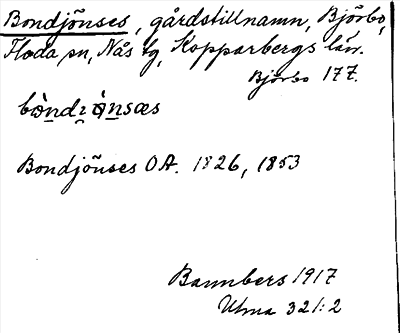 Bondjönses, gårdstillnamn, Björbo,
Floda sn, Nås tg, Kopparbergs län.
Björbo 177.
Bondjönses OA. 1826, 1853
Bannbers 1917
Ulma 321:2